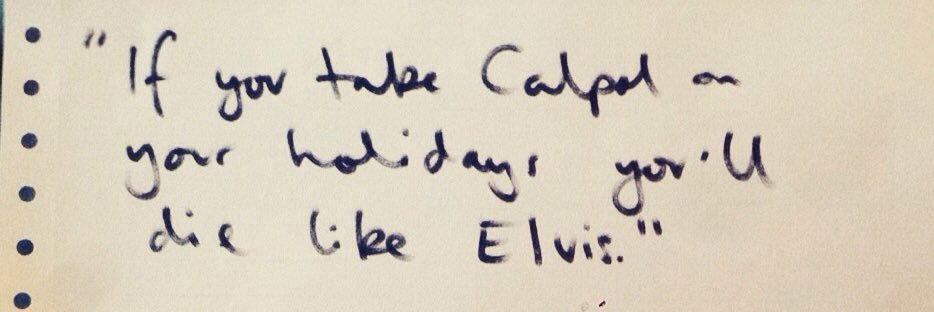 "If you take Calpol on
your holidays you'll
die like Elvis."